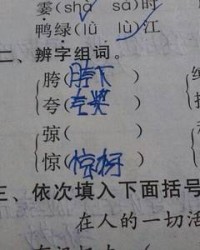 霎(shà sà)时
鸭绿(lǜ lù)江
二、辨字组词。
胯(胯下)
夸(夸奖)
弶( )
惊(惊讶)
三、依次填入下面括号
在人的一切活